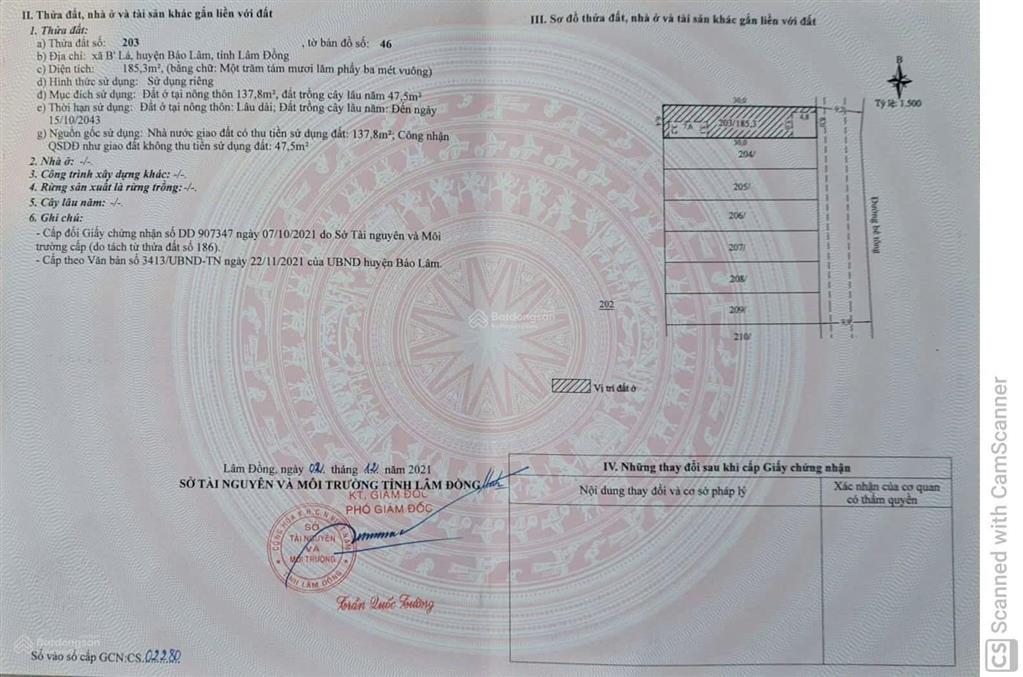 II. Thửa đất, nhà ở và tài sản khác gắn liền với đất
1. Thửa đất:
a) Thửa đất số: 203 , tờ bản đồ số: 46
b) Địa chỉ: xã B' Lá, huyện Bảo Lâm, tỉnh Lâm Đồng
c) Diện tích: 185,3m², (bằng chữ: Một trăm tám mươi lăm phẩy ba mét vuông)
d) Hình thức sử dụng: Sử dụng riêng
đ) Mục đích sử dụng: Đất ở tại nông thôn 137,8m², đất trồng cây lâu năm 47,5m²
e) Thời hạn sử dụng: Đất ở tại nông thôn: Lâu dài; Đất trồng cây lâu năm: Đến ngày
15/10/2043
g) Nguồn gốc sử dụng: Nhà nước giao đất có thu tiền sử dụng đất: 137,8m²; Công nhận
QSDĐ như giao đất không thu tiền sử dụng đất: 47,5m²
2. Nhà ở: -/-.
3. Công trình xây dựng khác: -/-.
4. Rừng sản xuất là rừng trồng: -/-.
5. Cây lâu năm: -/-.
6. Ghi chú:
- Cấp đổi Giấy chứng nhận số DD 907347 ngày 07/10/2021 do Sở Tài nguyên và Môi
trường cấp (do tách từ thửa đất số 186).
- Cấp theo Văn bản số 3413/UBND-TN ngày 22/11/2021 của UBND huyện Bảo Lâm.
Lâm Đồng, ngày 02 tháng 12 năm 2021
SỞ TÀI NGUYÊN VÀ MÔI TRƯỜNG TỈNH LÂM ĐỒNG
KT. GIÁM ĐỐC
PHÓ GIÁM ĐỐC
SỞ
TÀI NGUYÊN
VÀ
MÔI TRƯỜNG
TỈNH LÂM ĐỒNG
Trần Quốc Tường
Số vào sổ cấp GCN:CS.02280
III. Sơ đồ thửa đất, nhà ở và tài sản khác gắn liền với đất
B
Tỷ lệ: 1.500
30,0
203/185,3
7,6
4,8
30,0
204/
205/
206/
207/
208/
209/
210/
202
Đường bê tông
Vị trí đất ở
IV. Những thay đổi sau khi cấp Giấy chứng nhận
Nội dung thay đổi và cơ sở pháp lý
Xác nhận của cơ quan
có thẩm quyền
Batdongsan
Batdongsan
CS Scanned with CamScanner